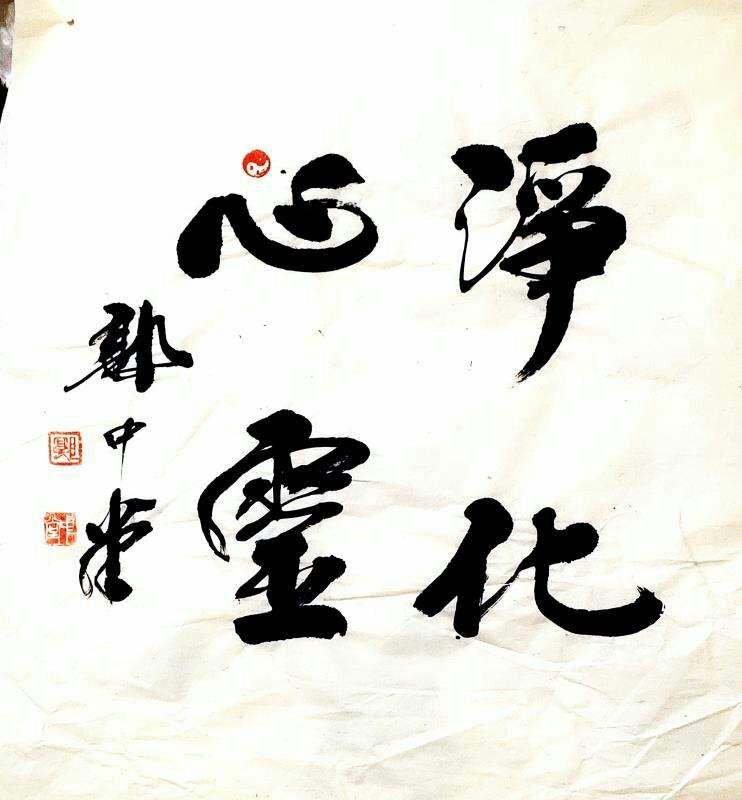 淨化
心靈
鄭中堂